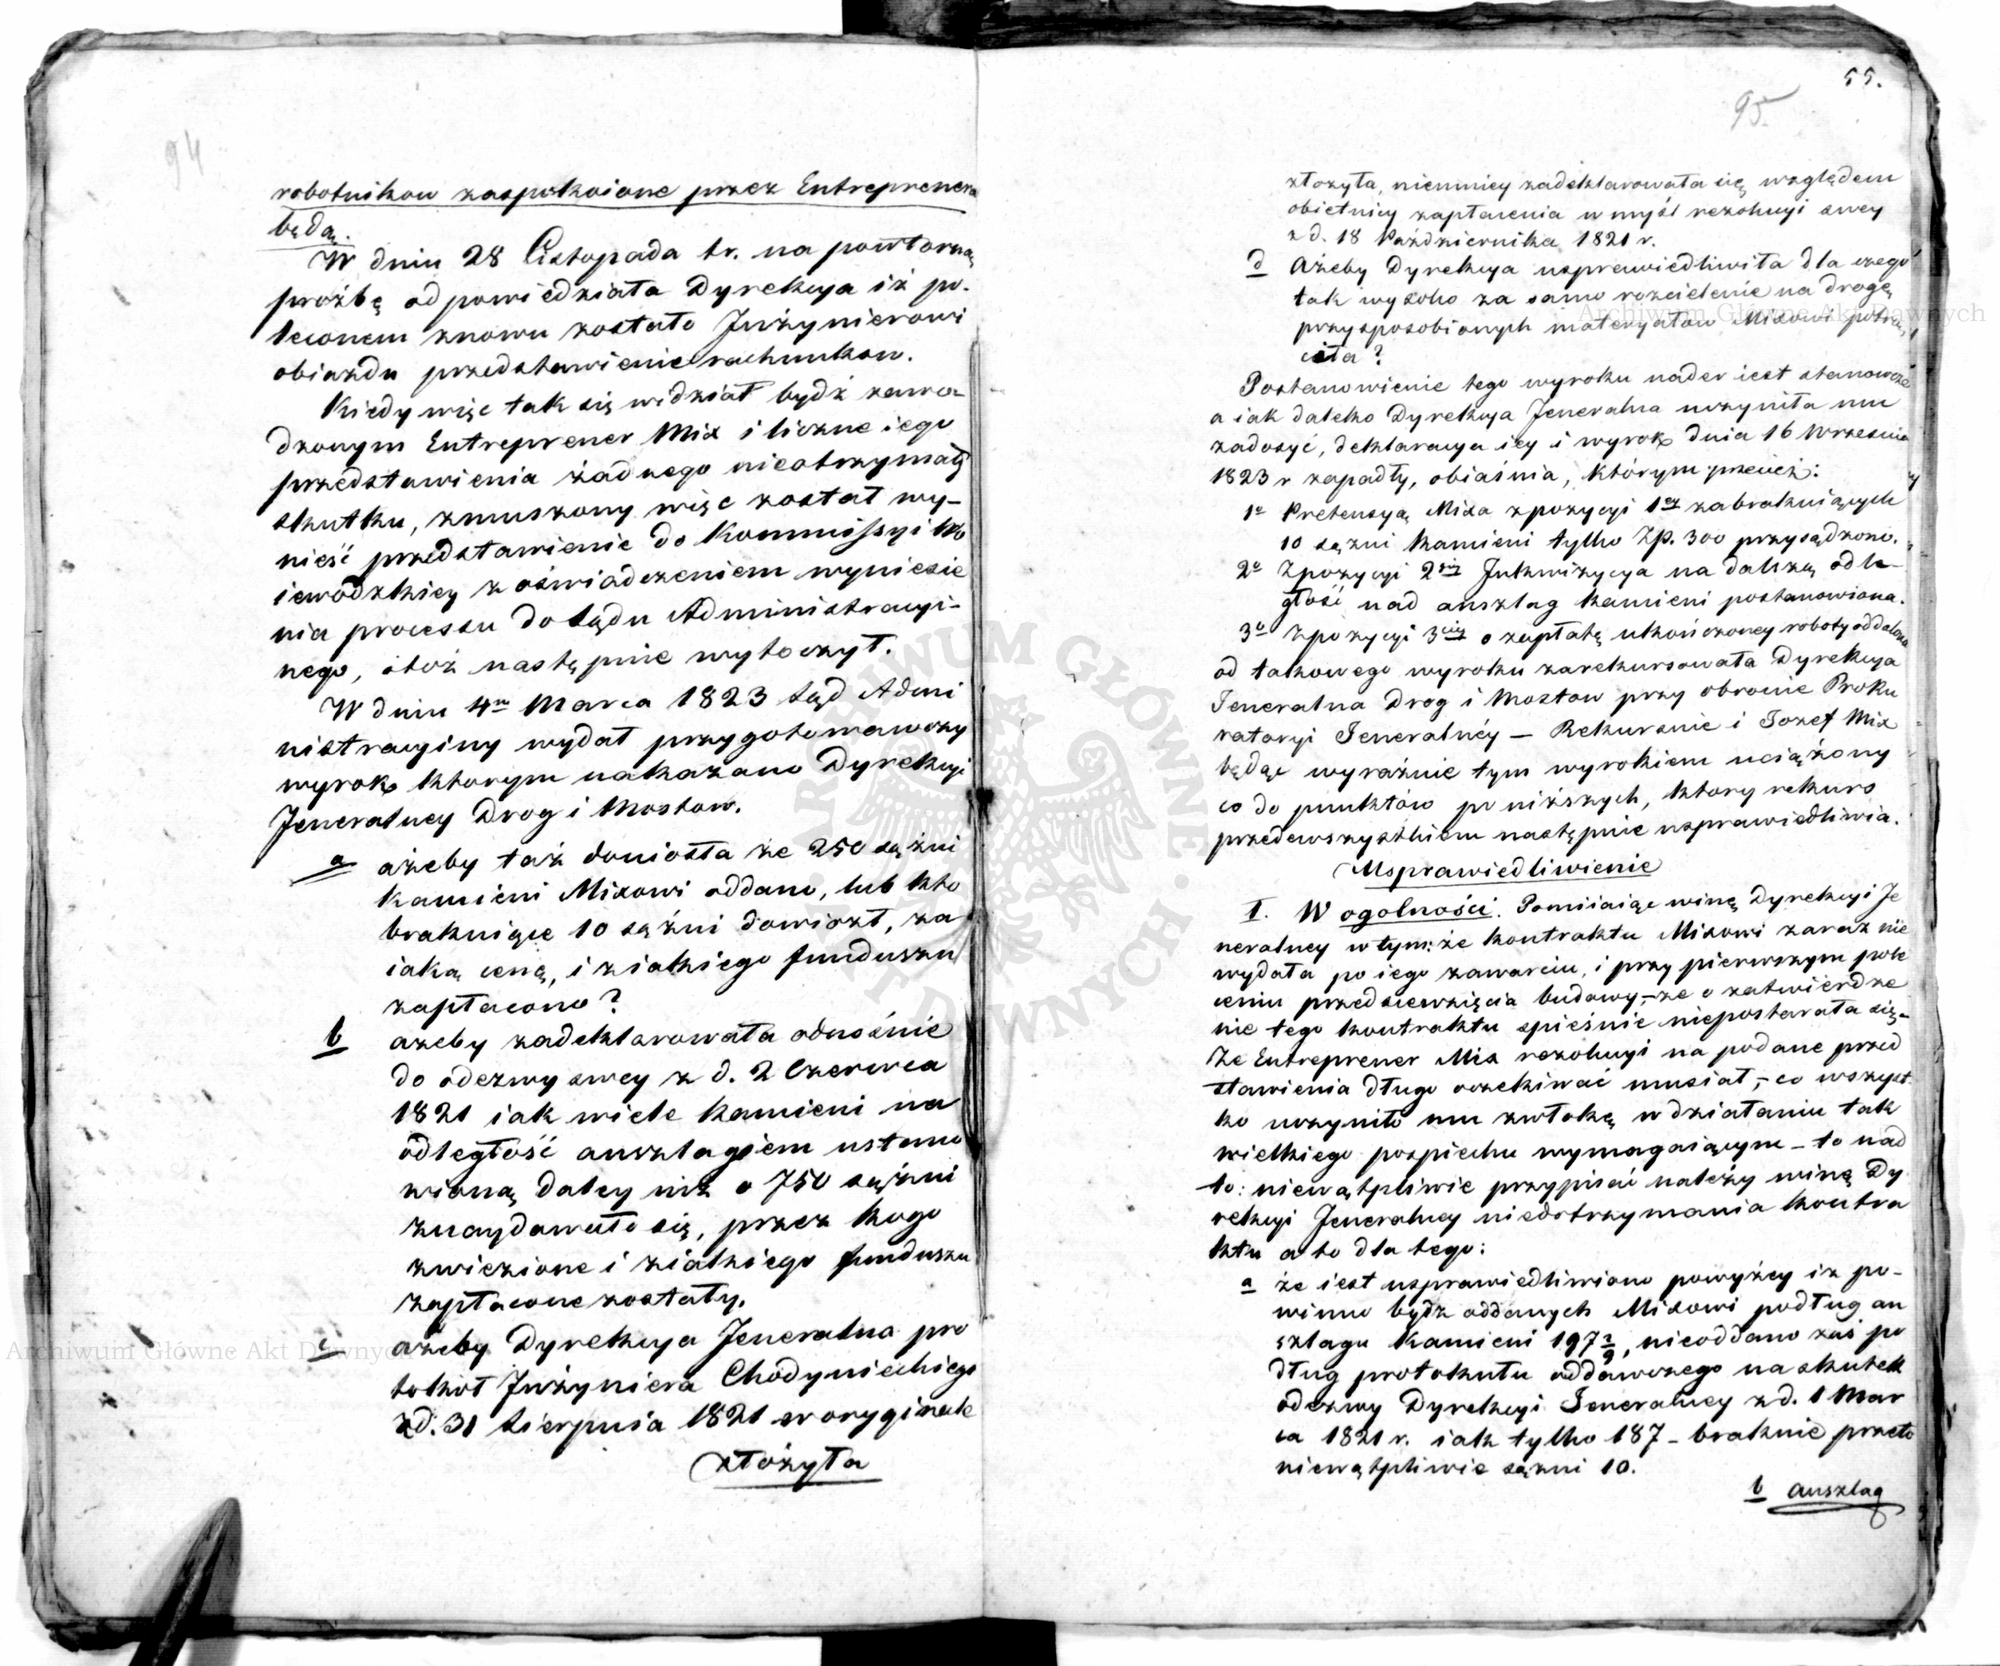 94
robotnikow zaspokoione przez Entreprenera
będą.
W dniu 28 Listopada t.r. na powtorną
proźbę odpowiedziała Dyrekcya iż po-
leconem znowu zostało Jnżynierowi
obiazdu przedstawienie rachunkow.
Kiedy więc tak się widział bydź zawie-
dzonym Entreprener Mix i liczne iego
przedstawienia żadnego nieotrzymały
skutku, zmuszony więc został wy-
nieść przedstawienie do Kommissyi Wo
iewodzkiey z oświadczeniem wyniesie
nia processu do Sądu Administracyi-
nego, otoż następnie wytoczył.
W dniu 4m Marca 1823 Sąd Admi
nistracyiny wydał przygotowawczy
wyrok, ktorym nakazano Dyrekcyi
Jeneralney Drog i Mostow.
a ażeby taż doniosła że 250 sążni
Kamieni Mixowi oddano, lub kto
braknięce 10 sążni dowiozł, za
iaką cenę, i z iakiego funduszu
zapłacono?
b ażeby zadeklarowała odnośnie
do odezwy swey z d. 2 Czerwca
1821 iak wiele kamieni na
odległość anszlagiem ustano
wioną daley niż o 750 sążni
znaydowało się, przez kogo
zwiezione i z iakiego funduszu
zapłacone zostały.
c ażeby Dyrekcya Jeneralna pro
tokoł Jnżyniera Chodynieckiego
z d. 31 Sierpnia 1821 w oryginale
złożyła
55.
95.
złożyła, niemniey zadeklarowała się względem
obietnicy zapłacenia w myśl rezolucyi swey
z d. 18 Października 1821 r.
d Ażeby Dyrekcya usprawiedliwiła dla czego
tak wysoko za samo rozcielenie na drogę
przysposobionych materyałow Mixowi potrą
ciła?
Postanowienie tego wyroku nader iest stanowcze
a iak daleko Dyrekcya Jeneralna uczyniła mu
zadosyć, deklaracya iey i wyrok dnia 16 Wrzesnia
1823 r zapadły, obiaśnia, którym przecież:
1o Pretensyą Mixa z pozycyi 1ey zabrakniących
10 sążni kamieni tylko Zp. 300 przysądzono.
2o Z pozycyi 2giey Jnkwizycya na dalszą odle-
głość nad anszlag kamieni postanowiona.
3o Z pozycyi 3ciey o zapłatę ukończoney roboty oddalono
od takowego wyroku zarekursowała Dyrekcya
Jeneralna Drog i Mostow przy obronie Proku
ratoryi Jeneralnéy – Rekursnie i Jozef Mix
będąc wyraźnie tym wyrokiem uciążony
co do punktów poniższych, ktory rekurs
przedewszystkiem następnie usprawiedliwia.
Usprawiedliwienie
I. W ogolności. Pomiiaiąc winę Dyrekcyi Je
neralney w tym: że kontraktu Mixowi zaraz nie
wydała po iego zawarciu, i przy pierwszym pole
ceniu przedsiewzięcia budowy,– że o zatwierdze
nie tego kontraktu spieśnie niepostarała się,–
Że Entreprener Mix rezolucyi na podane przed
stawienia długo oczekiwać musiał,– co wszyst
ko uczyniło mu zwłokę w działaniu tak
wielkiego pospiechu wymagaiącym – to nad
to: niewątpliwie przypisać należy winę Dy
rekcyi Jeneralney niedotrzymania kontra
ktu a to dla tego:
a że iest usprawiedliwiono powyżey iż po-
winno bydź oddanych Mixowi podług an
szlagu Kamieni 197 2/9, nieoddano zaś po
dług protokułu oddawczego na skutek
odezwy Dyrekcyi Jeneralney z d. 1 Mar
ca 1821 r. iak tylko 187 – braknie przeto
niewątpliwie sążni 10.
b anszlag